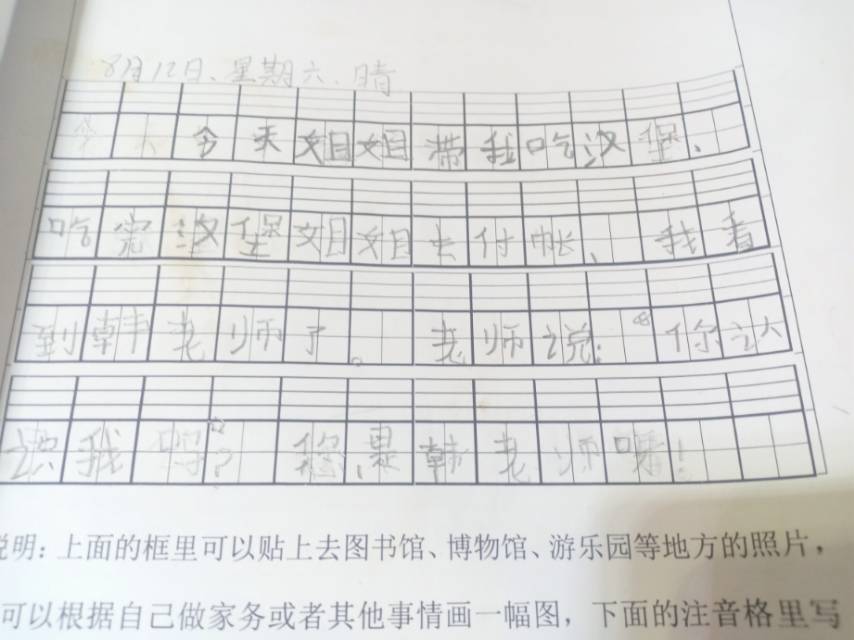 8月12日、星期六、晴
今天姐姐带我吃汉堡、
吃完汉堡姐姐去付帐、我看
到韩老师了。老师说:“你认
识我吗?”您是韩老师嘛!
说明：上面的框里可以贴上去图书馆、博物馆、游乐园等地方的照片，
可以根据自己做家务或者其他事情画一幅图，下面的注音格里写